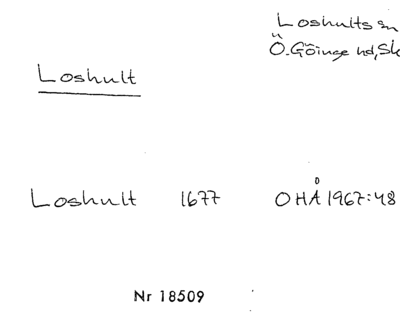 Loshults sn
Ö. Göinge hd, Sk
Loshult
Loshult 1677 OHÅ 1967:48
Nr 18509